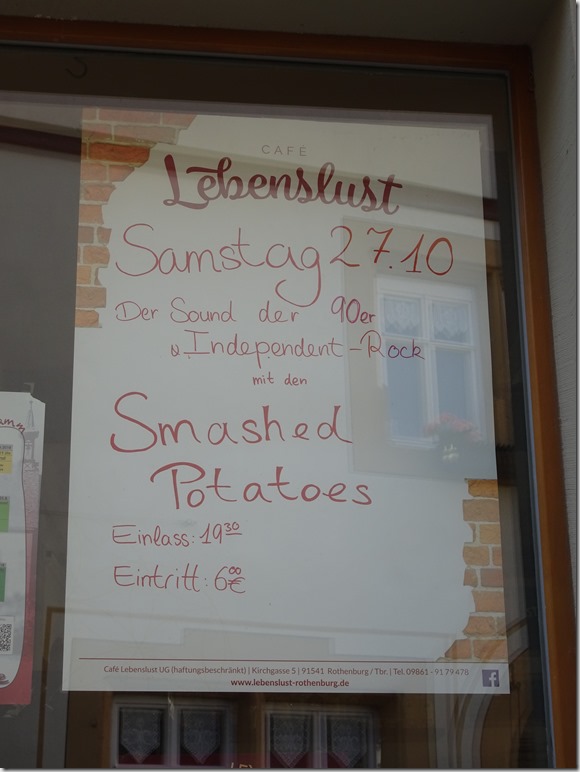 CAFÉ
Lebenslust
Samstag 27.10
Der Sound der 90er
u. Independent-Rock
mit den
Smashed
Potatoes
Einlass: 19³⁰
Eintritt: 6⁰⁰€
Café Lebenslust UG (haftungsbeschränkt) | Kirchgasse 5 | 91541 Rothenburg / Tbr. | Tel. 09861 - 91 79 478
www.lebenslust-rothenburg.de